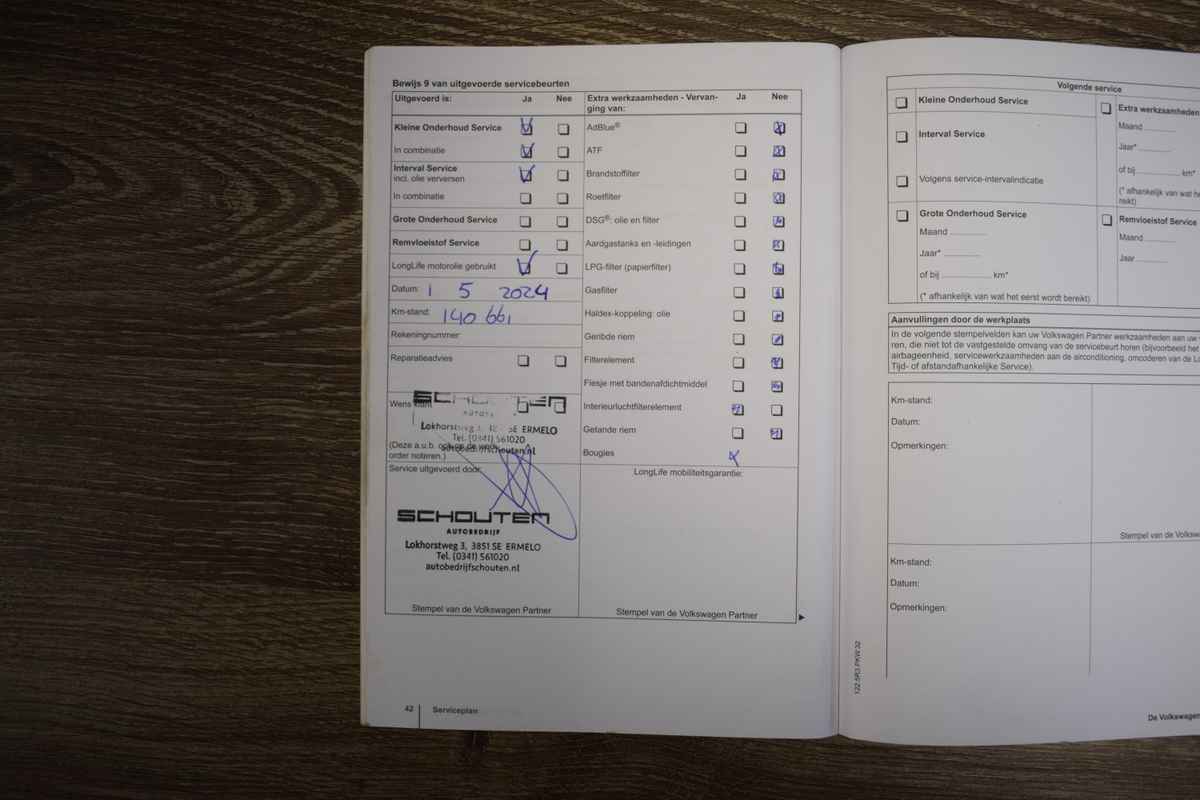 Bewijs 9 van uitgevoerde servicebeurten
Uitgevoerd is: Ja Nee
Kleine Onderhoud Service
In combinatie
Interval Service
incl. olie verversen
In combinatie
Grote Onderhoud Service
Remvloeistof Service
LongLife motorolie gebruikt
Datum: 1 5 2024
Km-stand: 140 661
Rekeningnummer
Reparatieadvies
Wens klant
SCHOUTEN
Lokhorstweg 3, SE ERMELO
Tel. (0341) 561020
autobedrijfschouten.nl
(Deze a.u.b. ook op de
order noteren.)
Service uitgevoerd door:
SCHOUTEN
AUTOBEDRIJF
Lokhorstweg 3, 3851 SE ERMELO
Tel. (0341) 561020
autobedrijfschouten.nl
Stempel van de Volkswagen Partner
Extra werkzaamheden - Vervan-
ging van: Ja Nee
AdBlue®
ATF
Brandstoffilter
Roetfilter
DSG®: olie en filter
Aardgastanks en -leidingen
LPG-filter (papierfilter)
Gasfilter
Haldex-koppeling: olie
Geribde riem
Filterelement
Flesje met bandenafdichtmiddel
Interieurluchtfilterelement
Getande riem
Bougies
LongLife mobiliteitsgarantie:
Stempel van de Volkswagen Partner
42 Serviceplan
Volgende service
Kleine Onderhoud Service
Interval Service
Volgens service-intervalindicatie
Grote Onderhoud Service
Maand
Jaar*
of bij km*
(* afhankelijk van wat het eerst wordt bereikt)
Extra werkzaamheden
Maand
Jaar*
of bij km*
(* afhankelijk van wat he
reikt)
Remvloeistof Service
Maand
Jaar
Aanvullingen door de werkplaats
In de volgende stempelvelden kan uw Volkswagen Partner werkzaamheden aan uw
ren, die niet tot de vastgestelde omvang van de servicebeurt horen (bijvoorbeeld het
airbageenheid, servicewerkzaamheden aan de airconditioning, omcoderen van de Lo
Tijd- of afstandafhankelijke Service).
Km-stand:
Datum:
Opmerkingen:
Stempel van de Volkswa
Km-stand:
Datum:
Opmerkingen:
122.5R3.PKW.32
De Volkswagen